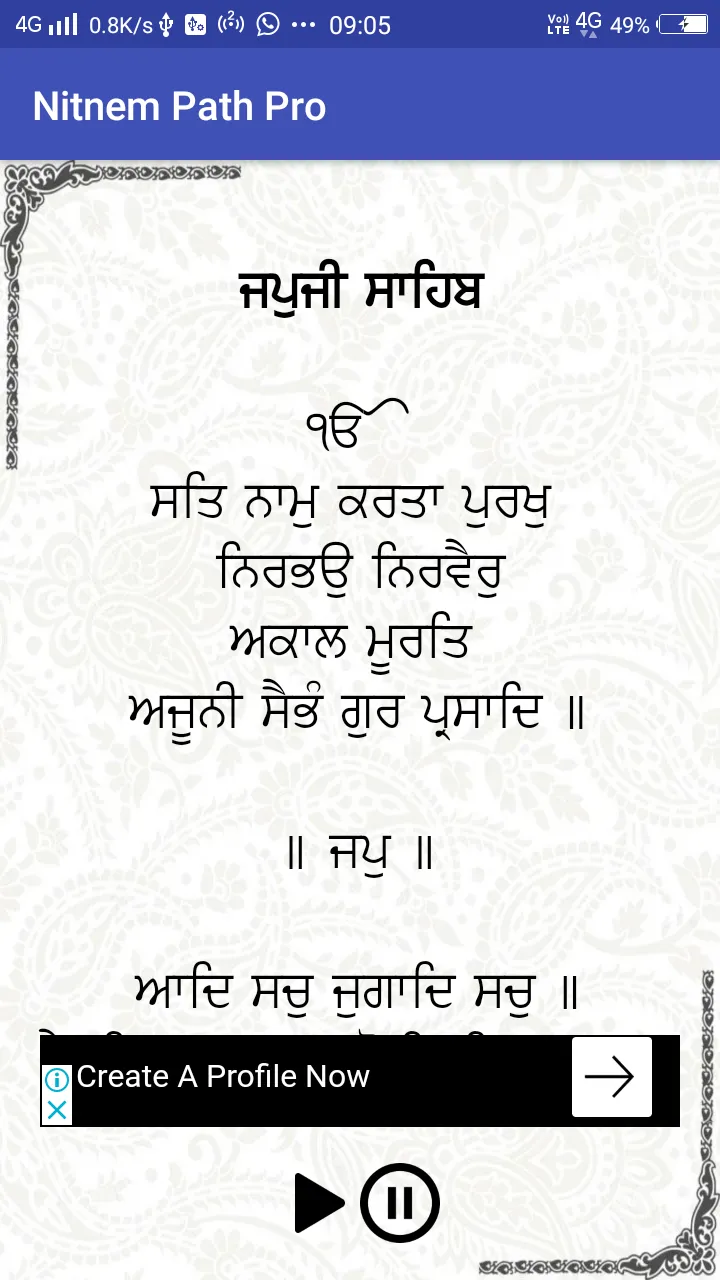 4G 0.8K/s 2 ... 09:05 Vo)) LTE 4G 49%
Nitnem Path Pro
ਜਪੁਜੀ ਸਾਹਿਬ
ੴ
ਸਤਿ ਨਾਮੁ ਕਰਤਾ ਪੁਰਖੁ
ਨਿਰਭਉ ਨਿਰਵੈਰੁ
ਅਕਾਲ ਮੂਰਤਿ
ਅਜੂਨੀ ਸੈਭੰ ਗੁਰ ਪ੍ਰਸਾਦਿ ॥
॥ ਜਪੁ ॥
ਆਦਿ ਸਚੁ ਜੁਗਾਦਿ ਸਚੁ ॥
Create A Profile Now